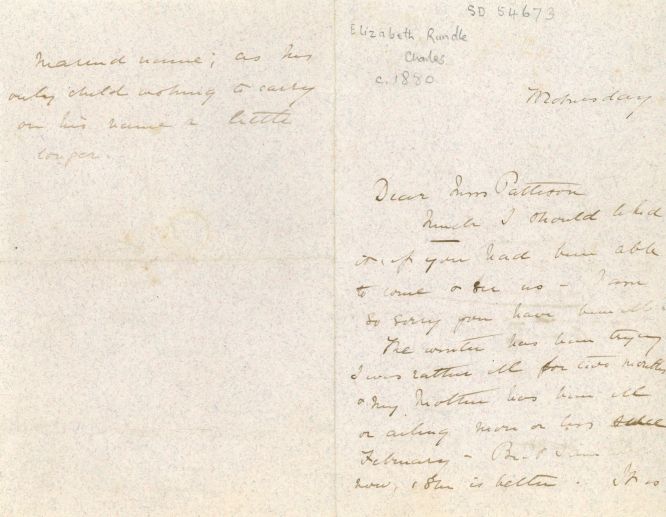 married name; as his
only child wishing to carry
on his name a little
longer.
SD 54673
Elizabeth Rundle
Charles
c. 1880
Wednesday
Dear Miss Pattison
Much I should liked
it if you had been able
to come & see us - I am
so sorry you have been ill -
The winter has been trying
I was rather ill for two months
& my Mother has been ill
or ailing more or less since
February - But I am
now, & she is better. It is